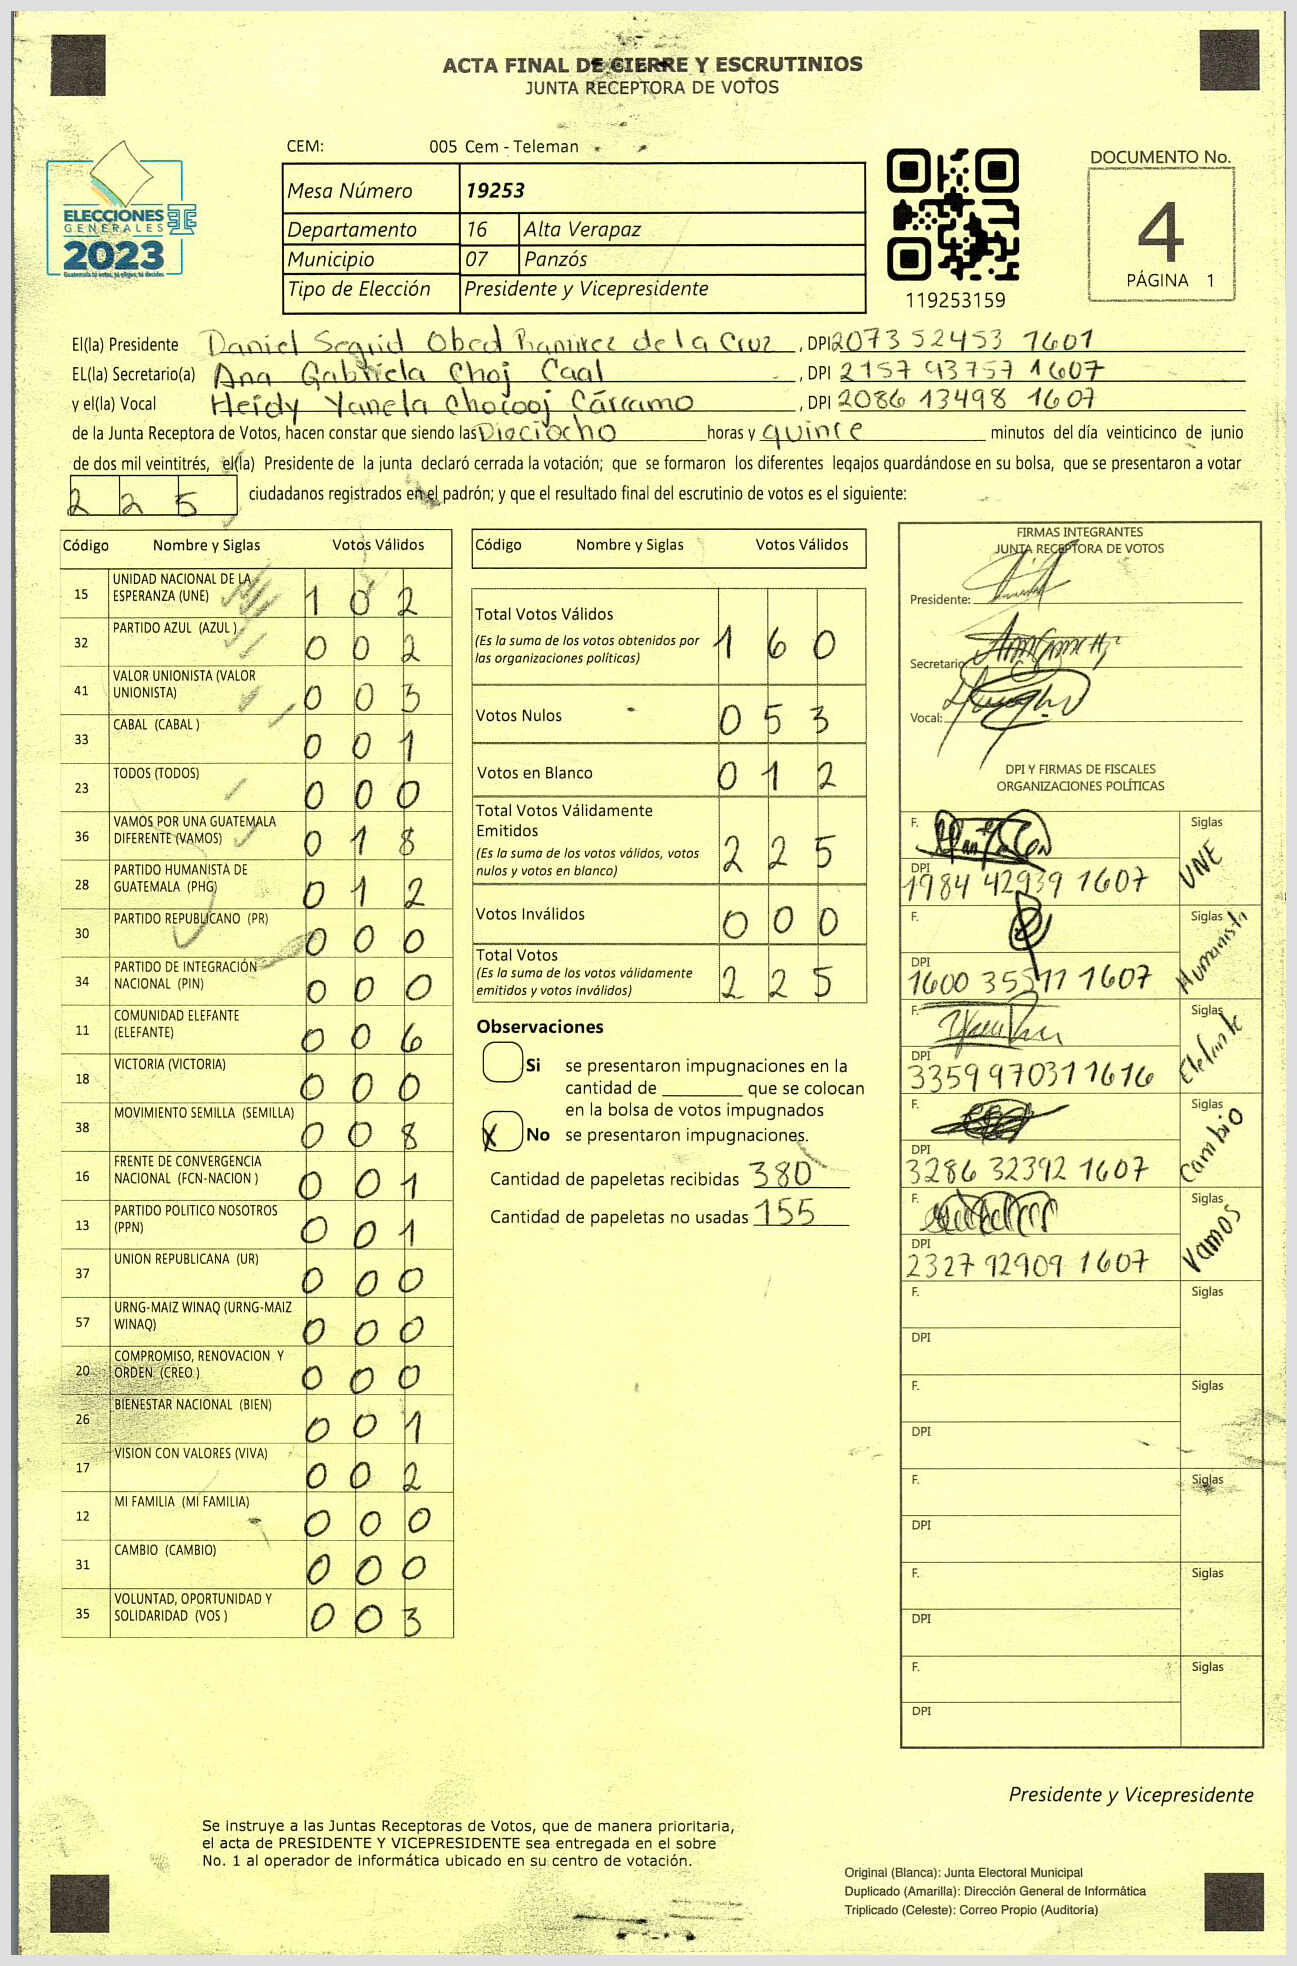 ACTA FINAL DE CIERRE Y ESCRUTINIOS
JUNTA RECEPTORA DE VOTOS
CEM: 005 Cem - Teleman
ELECCIONES
GENERALES
2023
Guatemala tú votas, tú eliges, tú decides
Mesa Número 19253
Departamento 16 Alta Verapaz
Municipio 07 Panzós
Tipo de Elección Presidente y Vicepresidente
119253159
DOCUMENTO No.
4
PÁGINA 1
El(la) Presidente Daniel Obed Ramirez de la Cruz, DPI 2073 52453 1601
EL(la) Secretario(a) Ana Gabriela Choj Caal, DPI 2157 93757 1607
y el(la) Vocal Heidy Yanela Chocooj Cárcamo, DPI 2086 13498 1607
de la Junta Receptora de Votos, hacen constar que siendo las Dieciocho horas y quince minutos del día veinticinco de junio
de dos mil veintitrés, el(la) Presidente de la junta declaró cerrada la votación; que se formaron los diferentes legajos guardándose en su bolsa, que se presentaron a votar
225 ciudadanos registrados en el padrón; y que el resultado final del escrutinio de votos es el siguiente:
Código Nombre y Siglas Votos Válidos
15 UNIDAD NACIONAL DE LA ESPERANZA (UNE) 102
32 PARTIDO AZUL (AZUL ) 002
41 VALOR UNIONISTA (VALOR UNIONISTA) 003
33 CABAL (CABAL ) 001
23 TODOS (TODOS) 000
36 VAMOS POR UNA GUATEMALA DIFERENTE (VAMOS) 018
28 PARTIDO HUMANISTA DE GUATEMALA (PHG) 012
30 PARTIDO REPUBLICANO (PR) 000
34 PARTIDO DE INTEGRACIÓN NACIONAL (PIN) 000
11 COMUNIDAD ELEFANTE (ELEFANTE) 006
18 VICTORIA (VICTORIA) 000
38 MOVIMIENTO SEMILLA (SEMILLA) 008
16 FRENTE DE CONVERGENCIA NACIONAL (FCN-NACION ) 001
13 PARTIDO POLITICO NOSOTROS (PPN) 001
37 UNION REPUBLICANA (UR) 000
57 URNG-MAIZ WINAQ (URNG-MAIZ WINAQ) 000
20 COMPROMISO, RENOVACION Y ORDEN (CREO ) 000
26 BIENESTAR NACIONAL (BIEN) 001
17 VISION CON VALORES (VIVA) 002
12 MI FAMILIA (MI FAMILIA) 000
31 CAMBIO (CAMBIO) 000
35 VOLUNTAD, OPORTUNIDAD Y SOLIDARIDAD (VOS ) 003
Código Nombre y Siglas Votos Válidos
Total Votos Válidos 160
(Es la suma de los votos obtenidos por
las organizaciones políticas)
Votos Nulos 053
Votos en Blanco 012
Total Votos Válidamente
Emitidos 225
(Es la suma de los votos válidos, votos
nulos y votos en blanco)
Votos Inválidos 000
Total Votos 225
(Es la suma de los votos válidamente
emitidos y votos inválidos)
Observaciones
Si se presentaron impugnaciones en la
cantidad de ________ que se colocan
en la bolsa de votos impugnados
X No se presentaron impugnaciones.
Cantidad de papeletas recibidas 380
Cantidad de papeletas no usadas 155
FIRMAS INTEGRANTES
JUNTA RECEPTORA DE VOTOS
Presidente:
Secretario:
Vocal:
DPI Y FIRMAS DE FISCALES
ORGANIZACIONES POLÍTICAS
F. Siglas UNE
DPI 1984 42939 1607
F. Siglas Humanista
DPI 1600 35511 1607
F. Siglas Elefante
DPI 3359 97031 1616
F. Siglas Cambio
DPI 3286 32392 1607
F. Siglas Vamos
DPI 2327 92909 1607
F. Siglas
DPI
F. Siglas
DPI
F. Siglas
DPI
F. Siglas
DPI
F. Siglas
DPI
Presidente y Vicepresidente
Se instruye a las Juntas Receptoras de Votos, que de manera prioritaria,
el acta de PRESIDENTE Y VICEPRESIDENTE sea entregada en el sobre
No. 1 al operador de informática ubicado en su centro de votación.
Original (Blanca): Junta Electoral Municipal
Duplicado (Amarilla): Dirección General de Informática
Triplicado (Celeste): Correo Propio (Auditoría)